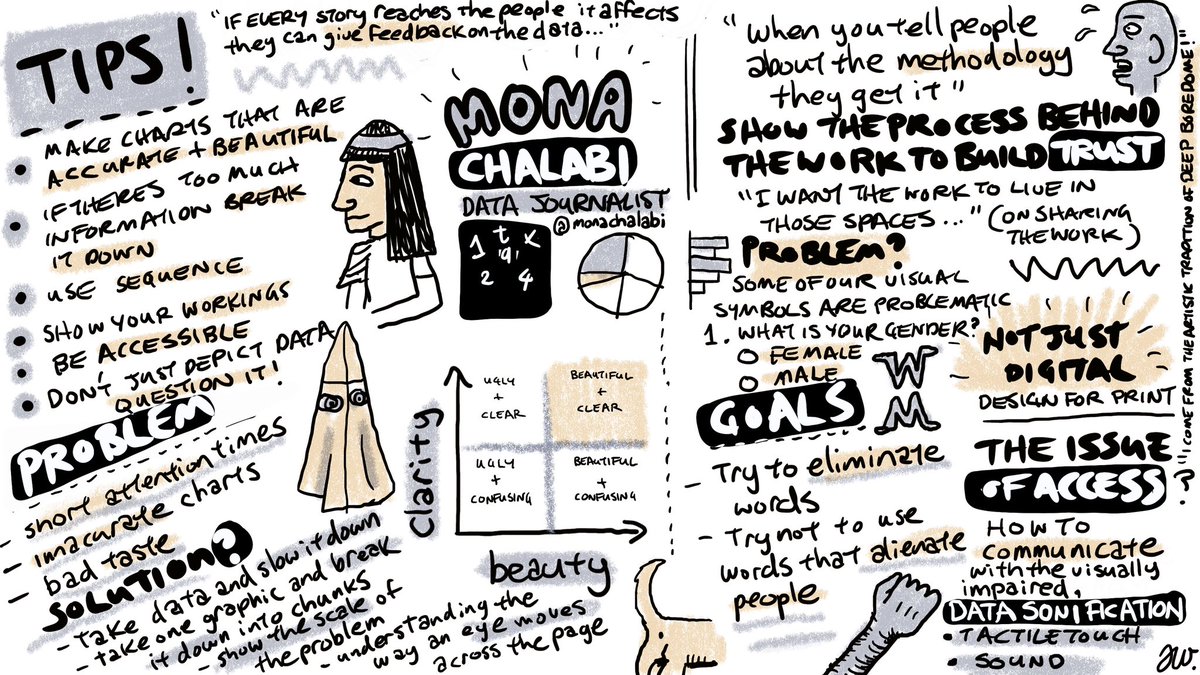 TIPS!
"IF EVERY STORY REACHES THE PEOPLE IT AFFECTS
THEY CAN GIVE FEEDBACK ON THE DATA..."
MAKE CHARTS THAT ARE
ACCURATE + BEAUTIFUL
IF THERES TOO MUCH
INFORMATION BREAK
IT DOWN
USE SEQUENCE
SHOW YOUR WORKINGS
BE ACCESSIBLE
DON'T JUST DEPICT DATA
QUESTION IT!
PROBLEM
- short attention times
- imacurate charts
- bad taste
SOLUTION?
- take data and slow it down
- take one graphic and break
it down into chunks
- show the scale of
the problem
- understanding the
way an eye moves
across the page
MONA
CHALABI
DATA JOURNALIST
@monachalabi
clarity
UGLY
+
CLEAR
BEAUTIFUL
+
CLEAR
UGLY
+
CONFUSING
BEAUTIFUL
+
CONFUSING
beauty
"when you tell people
about the methodology
they get it"
SHOW THE PROCESS BEHIND
THE WORK TO BUILD TRUST
"I WANT THE WORK TO LIVE IN
THOSE SPACES..." (ON SHARING
THE WORK)
PROBLEM?
SOME OF OUR VISUAL
SYMBOLS ARE PROBLEMATIC
1. WHAT IS YOUR GENDER?
O FEMALE
O MALE
W
M
GOALS
- Try to eliminate
words
- Try not to use
words that alienate
people
NOT JUST
DIGITAL
DESIGN FOR PRINT
THE ISSUE
OF ACCESS
HOW TO
communicate
with the visually
impaired.
DATA SONIFICATION
• TACTILE TOUCH
• SOUND
"I COME FROM THE ARTISTIC TRADITION OF DEEP BOREDOME!"